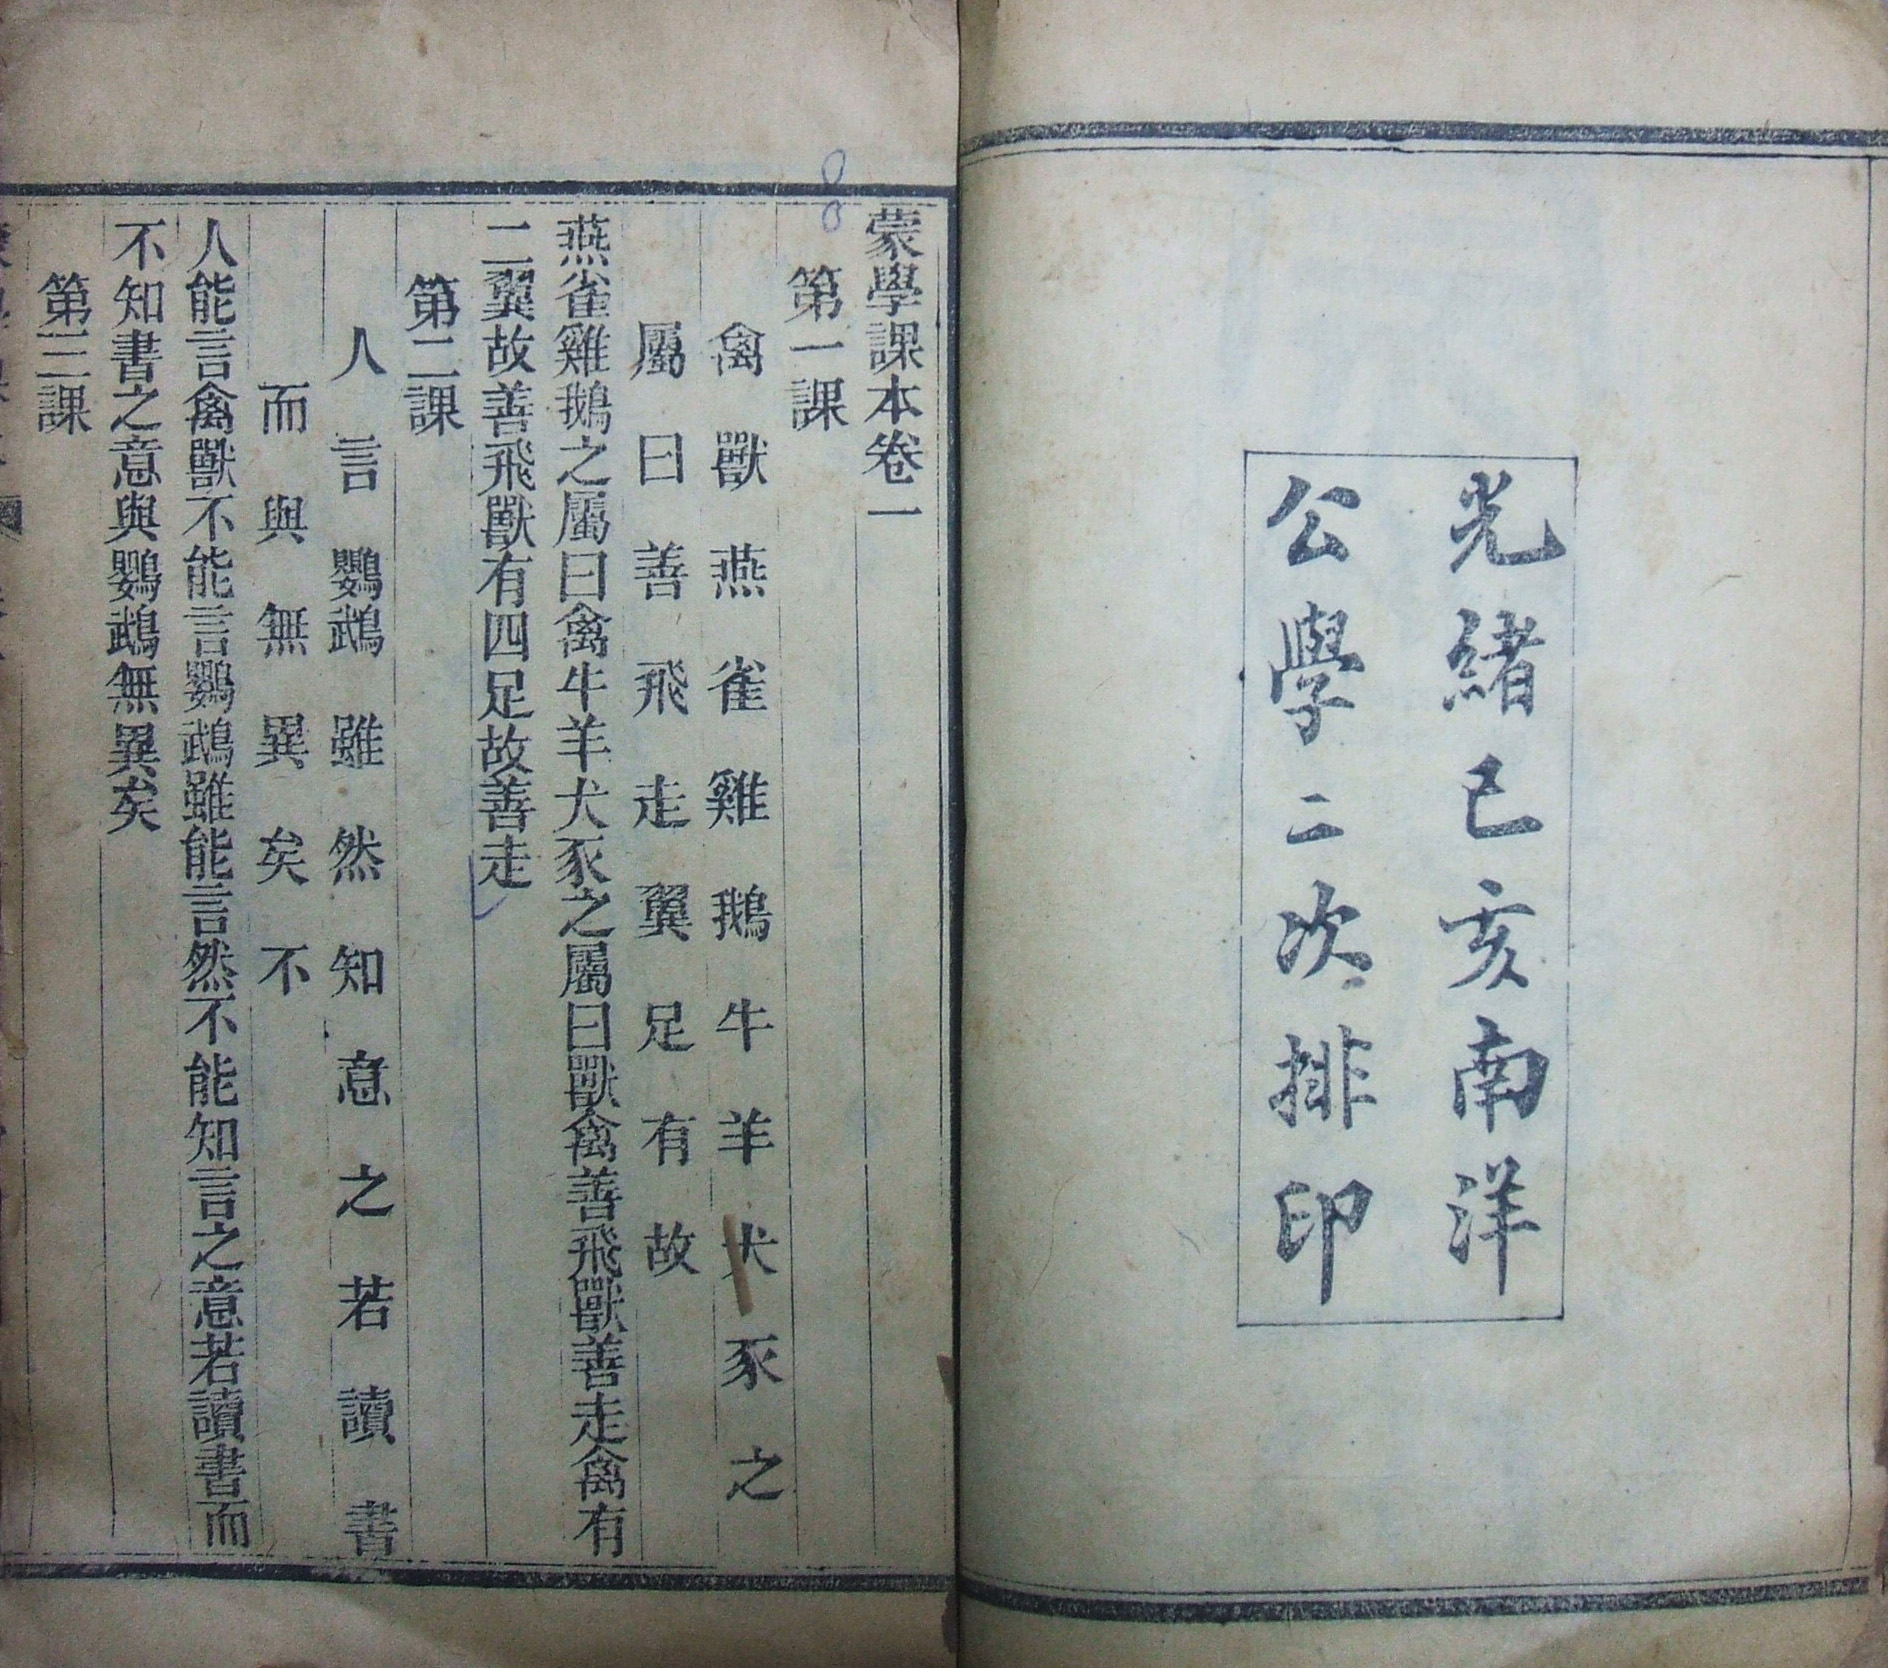 光緒已亥南洋
公學二次排印
蒙學課本卷一
第一課
禽獸燕雀雞鵝牛羊犬豕之
屬曰善飛走翼足有故
燕雀雞鵝之屬曰禽牛羊犬豕之屬曰獸禽善飛獸善走禽有
二翼故善飛獸有四足故善走
第二課
人言鸚鵡雖然知意之若讀書
而與無異矣不
人能言禽獸不能言鸚鵡雖能言然不能知言之意若讀書而
不知書之意與鸚鵡無異矣
第三課